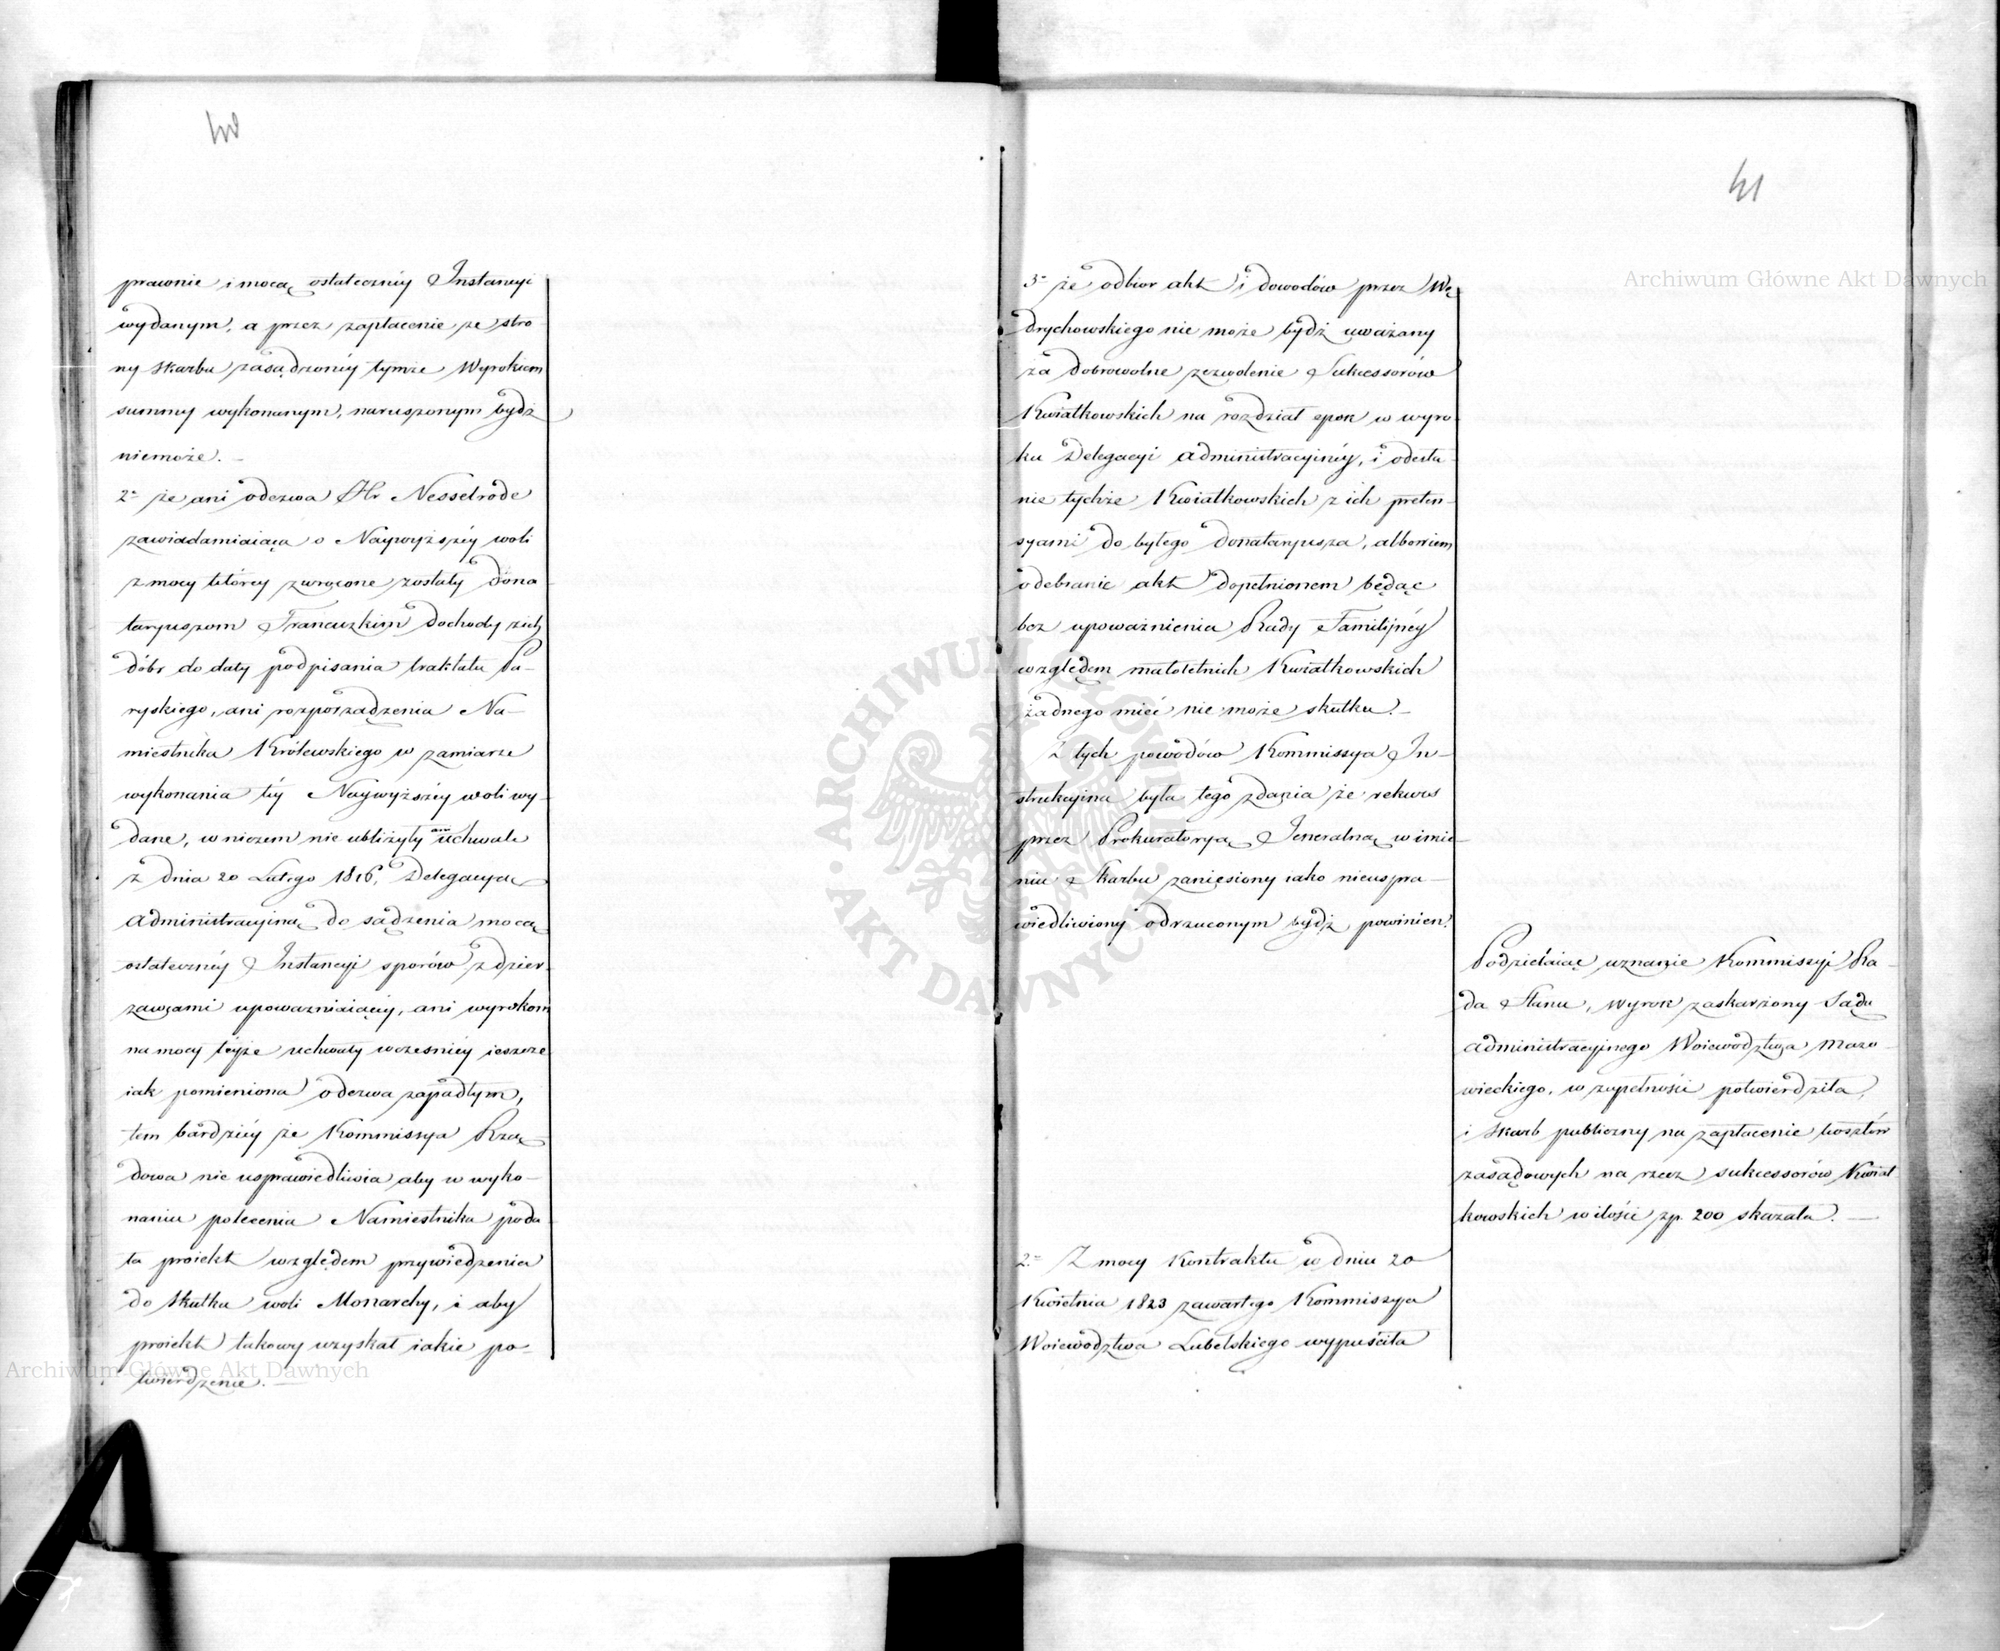 40
prawnie i mocą ostateczney Instancyi
wydanym, a przez zapłacenie ze stro-
ny Skarbu zasądzonéy tymże Wyrokiem
summy wykonanym, naruszonym bydź
niemoże. –
2° że ani odezwa Hr Nesselrode
zawiadamiaiąca o Naywyższéy woli
z mocy którey zwrócone zostały dona
taryuszom Francuzkim dochody z ich
dóbr do daty podpisania traktatu Pa-
ryskiego, ani rozporządzenia Na-
miestnika Królewskiego w zamiarze
wykonania téy Naywyższéy woli wy-
dane, w niczem nie ubliżyły ani uchwale
z dnia 20 Lutego 1816, Delegacyą
administracyiną do sądzenia mocą
ostatecznéy Instancyi sporów z dzier-
zawcami upoważniaiącéy, ani wyrokom
na mocy téyże uchwały wcześniéy ieszcze
iak pomieniona odezwa zapadłym,
tem bardziéy że Kommissya Rzą-
dowa nie usprawiedliwia aby w wyko-
naniu polecenia Namiestnika poda
ła proiekt względem przywiedzenia
do skutku woli Monarchy, i aby
proiekt takowy uzyskał iakie po-
twierdzenie. –
41
3° że odbior akt i dowodów przez Wę
drychowskiego nie może bydź uważany
za dobrowolne zezwolenie Sukcessorów
Kwiatkowskich na rozdział epok w wyro-
ku Delegacyi administracyinéy, i odesła-
nie tychże Kwiatkowskich z ich preten-
syami do byłego donataryusza, albowiem
odebranie akt dopełnionem będąc
bez upoważnienia Rady Familijnéy
względem małoletnich Kwiatkowskich
żadnego mieć nie może skutku. –
Z tych powodów Kommissya In-
strukcyina była tego zdania że rekurs
przez Prokuratoryą Jeneralną w imie-
niu Skarbu zaniesiony iako nieuspra-
wiedliwiony odrzuconym bydź powinien.
Podzielaiąc uznanie Kommissyi Ra-
da Stanu, wyrok zaskarżony Sądu
administracyjnego Woiewództwa Mazo-
wieckiego, w zupełności potwierdziła,
i Skarb publiczny na zapłacenie kosztów
zasądowych na rzecz sukcessorów Kwiat
kowskich w ilości zp. 200 skazała. –
2° Z mocy Kontraktu w dniu 20
Kwietnia 1823 zawartego Kommissya
Woiewództwa Lubelskiego wypuściła
Archiwum Główne Akt Dawnych
Archiwum Główne Akt Dawnych
ARCHIWUM GŁÓWNE AKT DAWNYCH